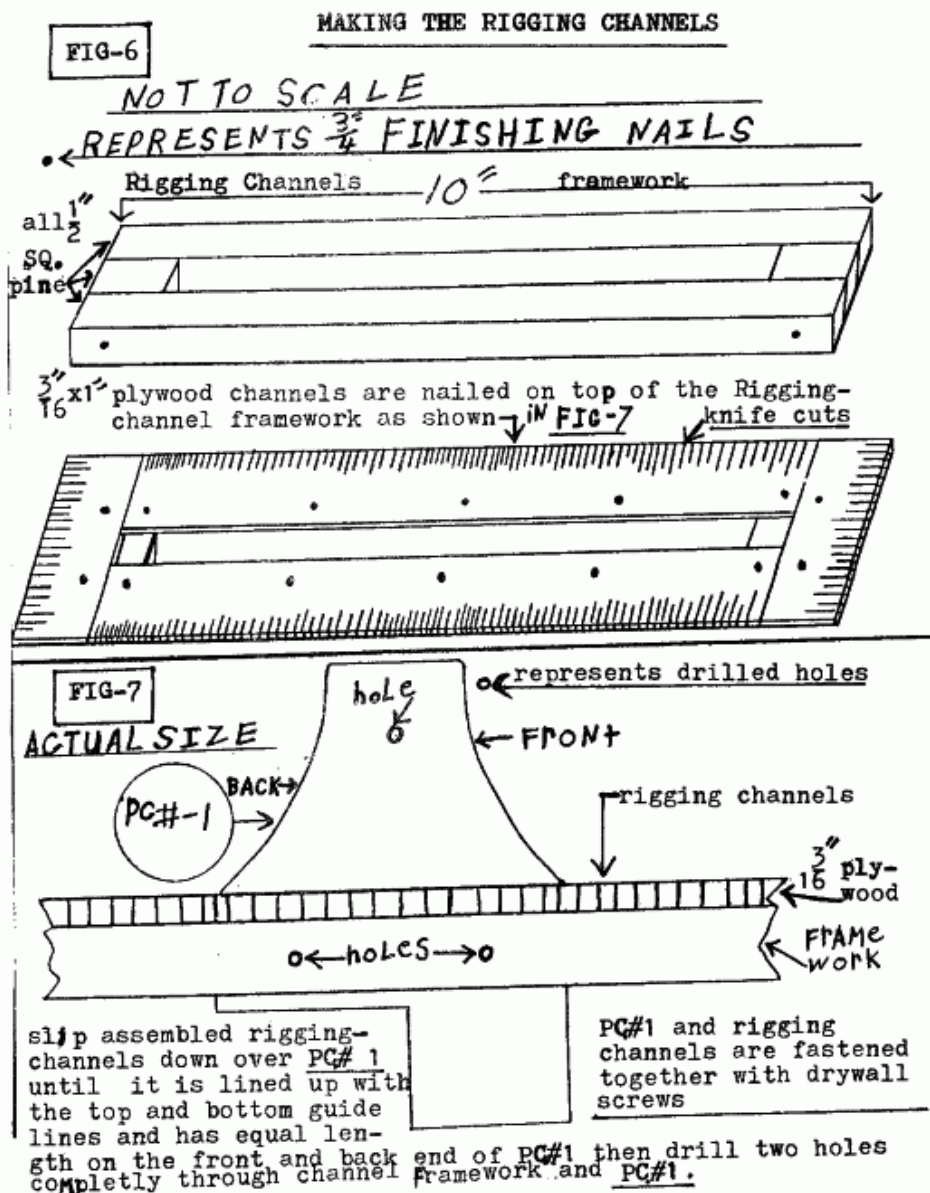 MAKING THE RIGGING CHANNELS
FIG-6
NOT TO SCALE
REPRESENTS 3/4" FINISHING NAILS
Rigging Channels 10" framework
all 1/2"
SQ.
pine
3/16" x1" plywood channels are nailed on top of the Rigging-
channel framework as shown iN FIG-7
knife cuts
FIG-7
hole
represents drilled holes
ACTUAL SIZE
FRONT
BACK
PC#-1
rigging channels
3/16" ply-
wood
holes
FRAME
work
slip assembled rigging-
channels down over PC# 1
until it is lined up with
the top and bottom guide
lines and has equal len-
gth on the front and back end of PC#1 then drill two holes
completly through channel Framework and PC#1.
PC#1 and rigging
channels are fastened
together with drywall
screws